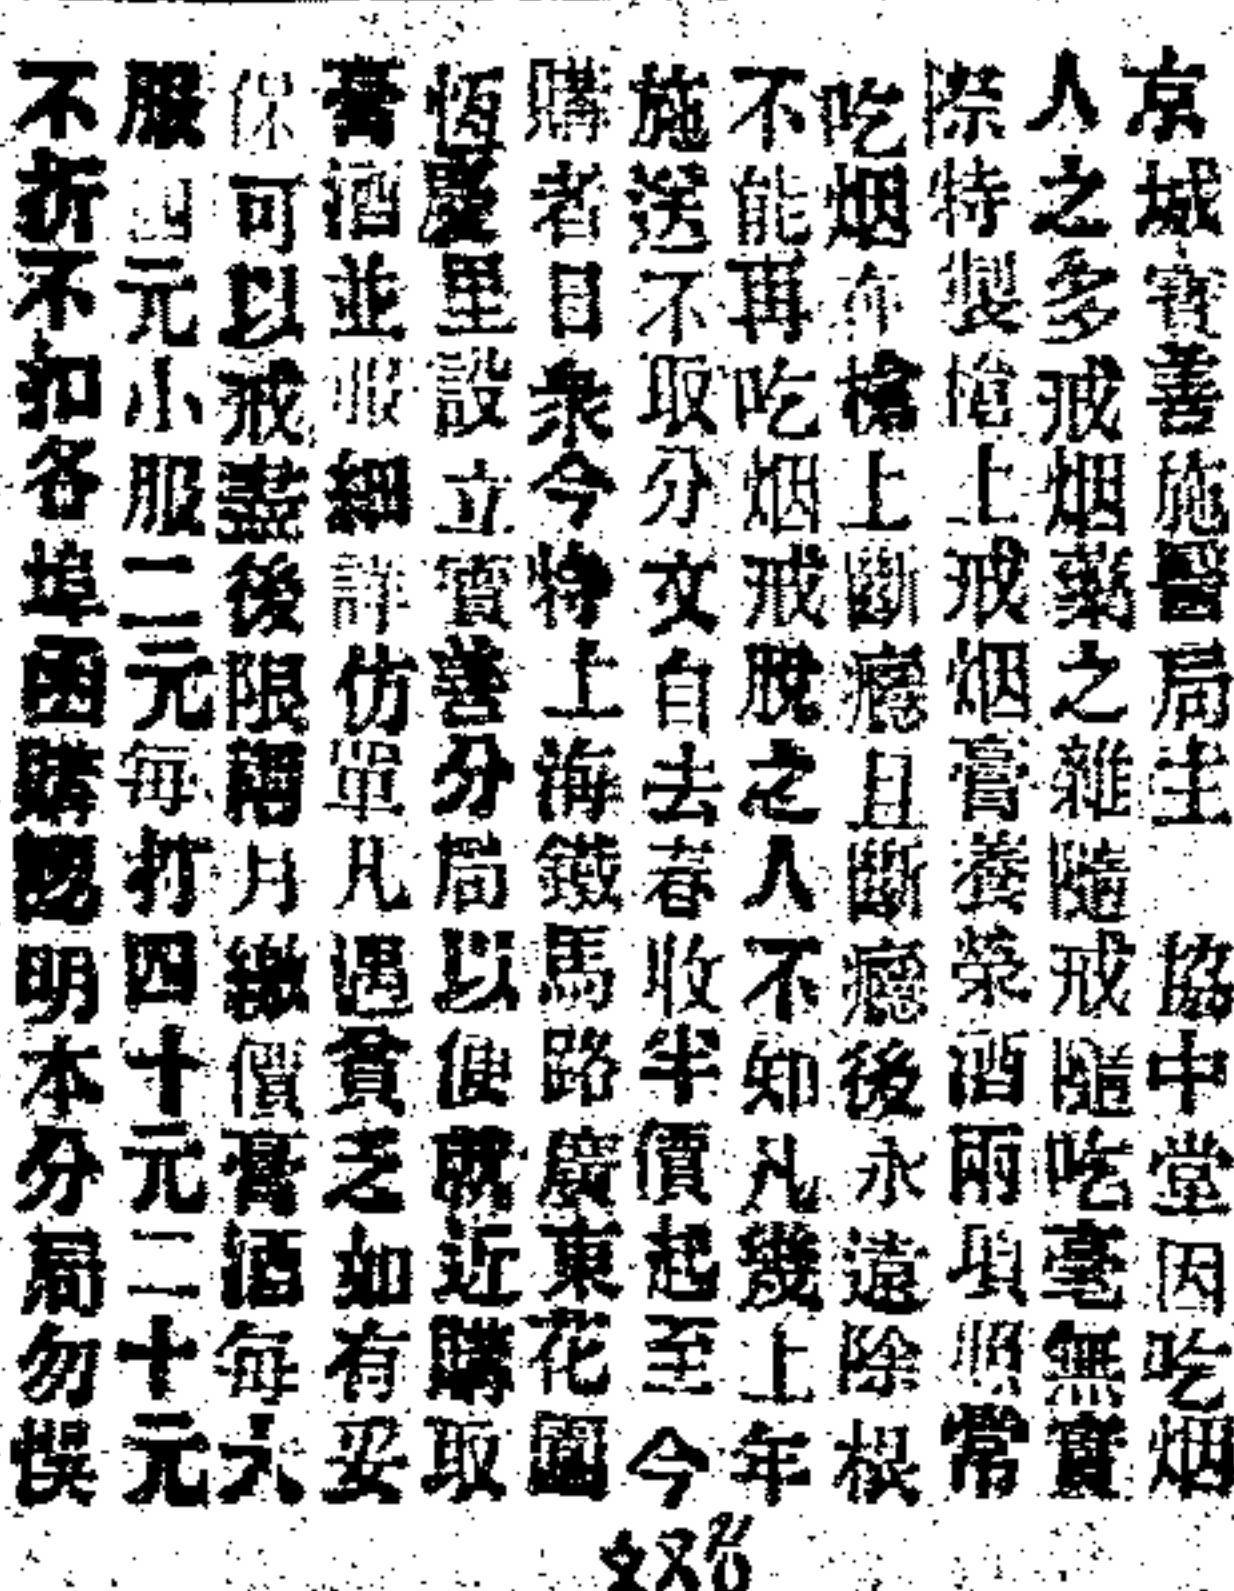 京城寶善施醫局主　協中堂因吃烟
人之多戒烟藥之雜隨戒隨吃毫無實
際特製槍上戒烟膏養榮酒兩項照常
吃烟在槍上斷癮且斷癮後永遠除根
不能再吃烟戒脫之人不知凡幾上年
施送不取分文自去春收半價起至今
購者日衆今特上海鐵馬路廣東花園
恆慶里設立寶善分局以便就近購取
膏酒並服細詳仿單凡遇貧乏如有妥
保可以戒盡後限兩月繳價膏酒每大
服四元小服二元每打四十元二十元
不折不扣各埠函購認明本分局勿悞